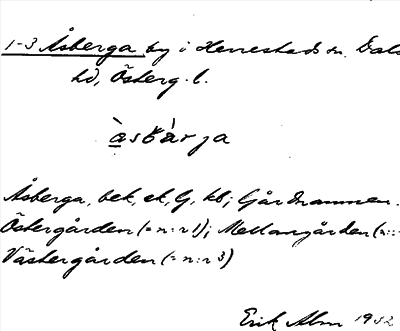 1-3 Åsberga by i Herrestads sn. Dals
hd, Österg. l.
åsbärja
Åsberga, bek, ek, G, kb; Gårdnamnen.
Östergården (= n:r 1); Mellangården (= n:
Västergården (= n:r 3)
Erik Alm 1932